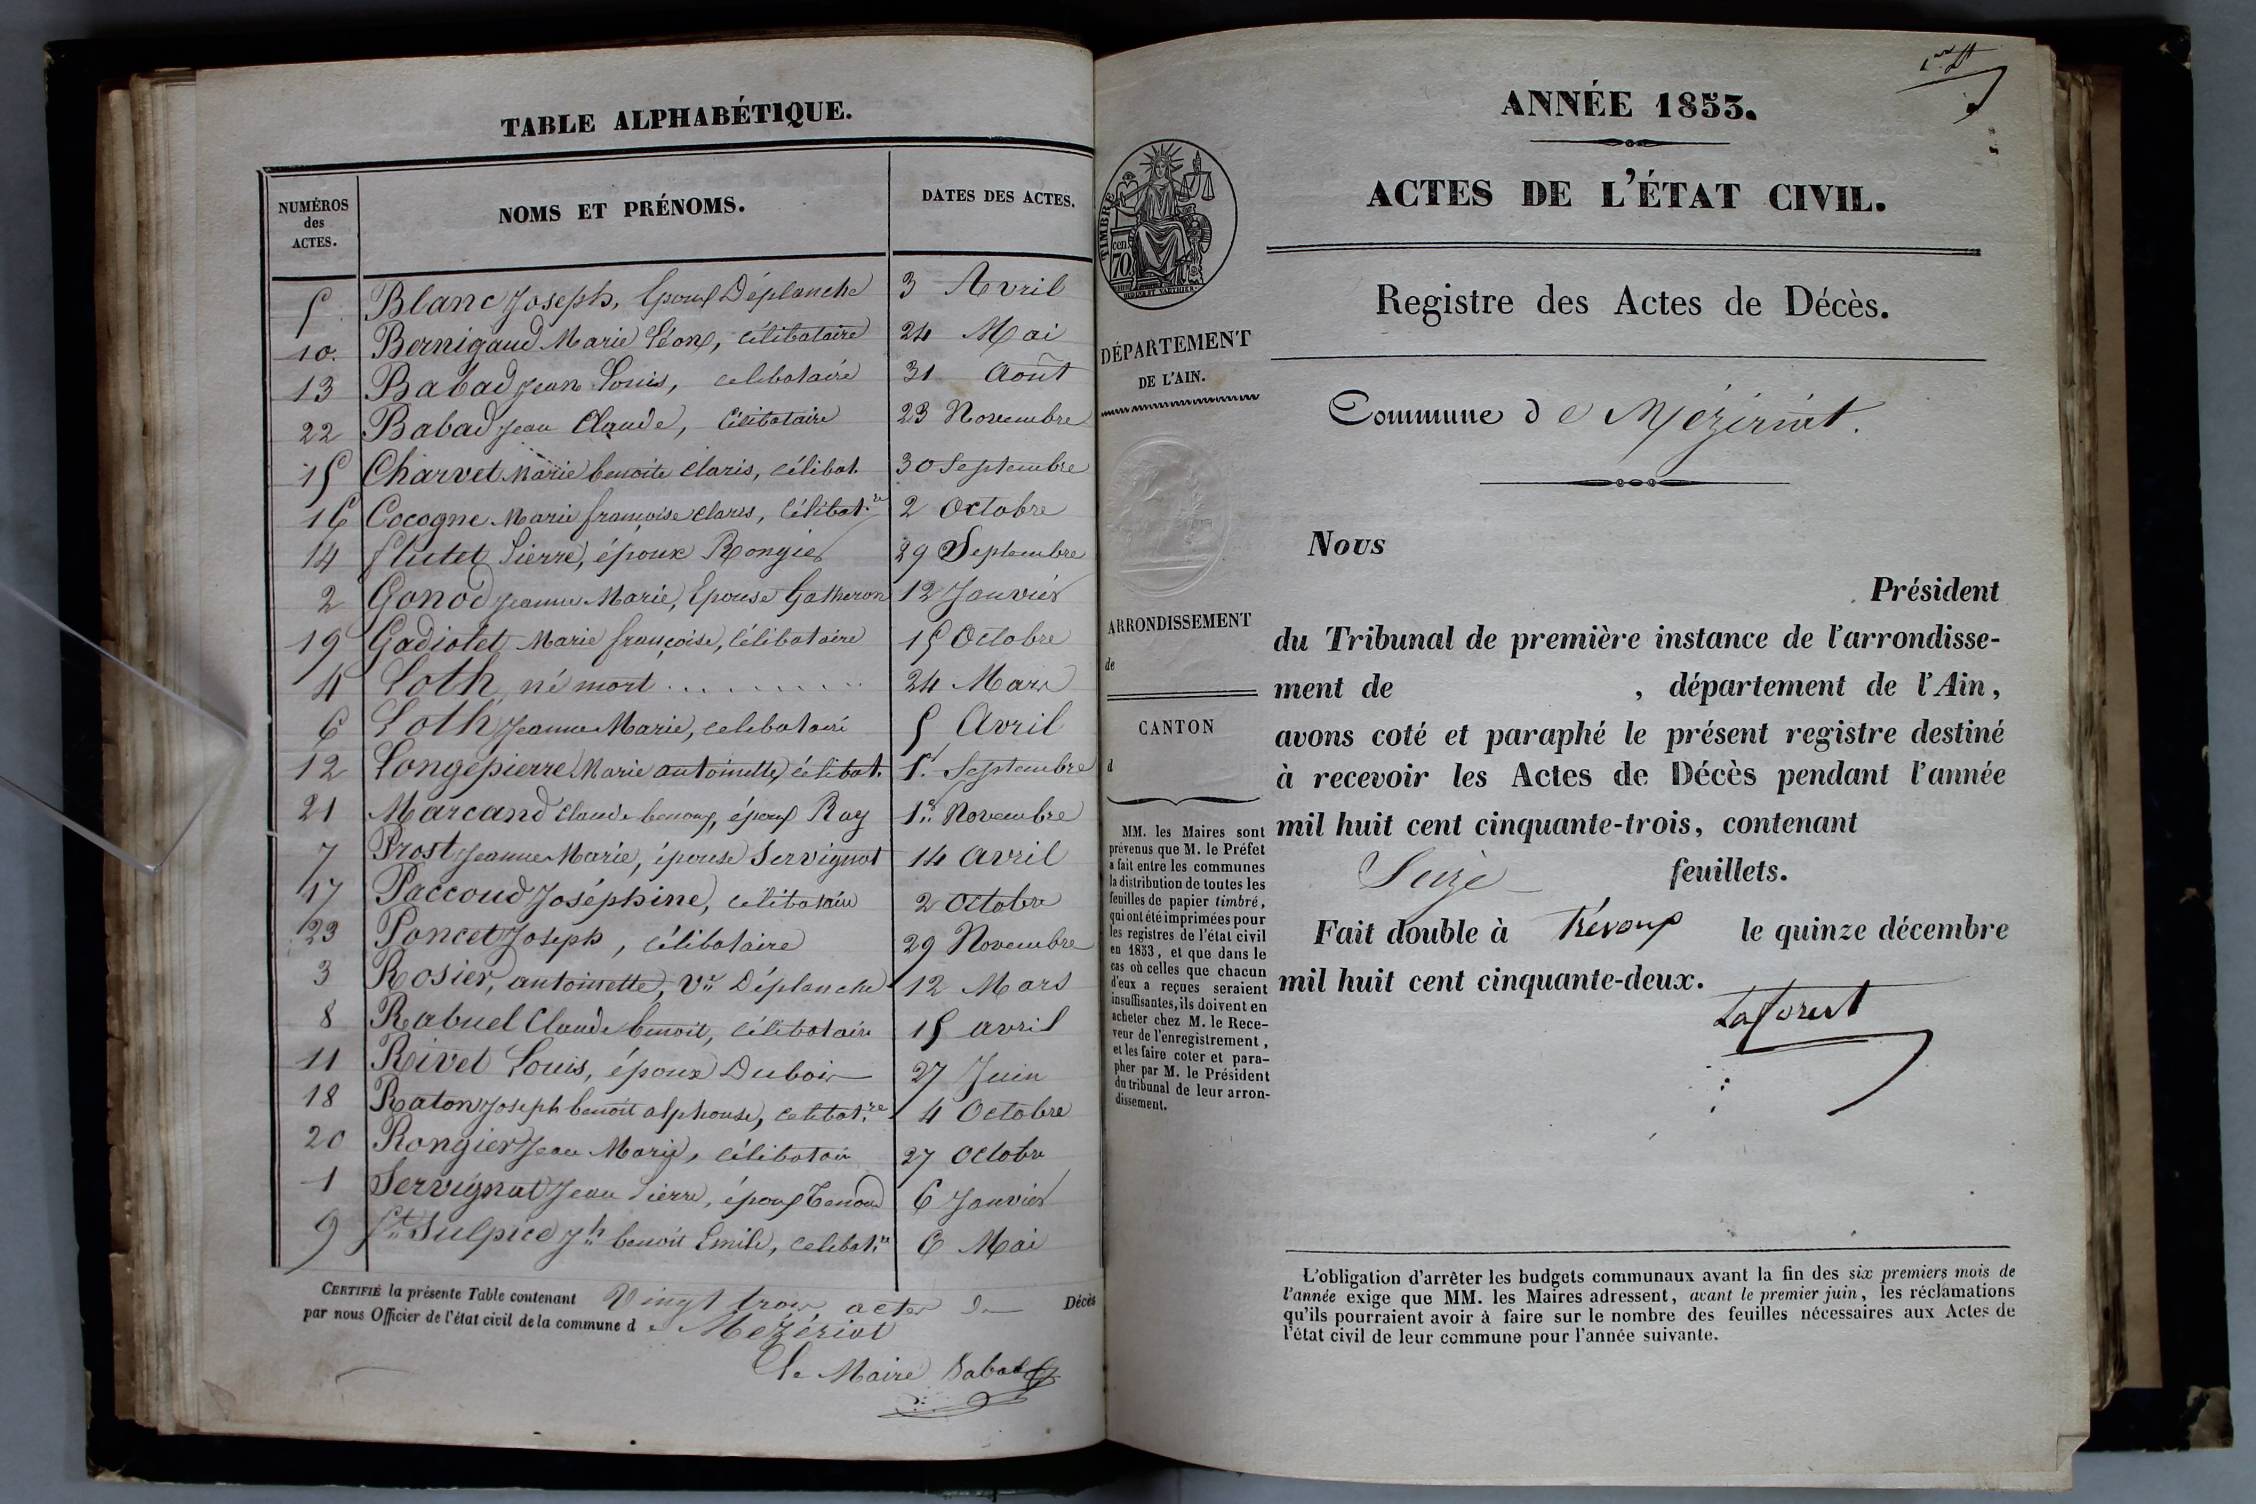 TABLE ALPHABÉTIQUE.
NUMÉROS des ACTES. NOMS ET PRÉNOMS. DATES DES ACTES.
5 Blanc Joseph, Epoux Déplanche 3 Avril
10. Bernigaud Marie Léon, célibataire 24 Mai
13 Babad Jean Louis, celibataire 31 Août
22 Babad Jean Claude, Célibataire 23 Novembre
15 Charvet Marie benoite Claris, célibat. 30 Septembre
16 Cocogne Marie françoise claris, Célibat.re 2 Octobre
14 flutet Pierre, époux Rongier 29 Septembre
2 Gonod Jeanne Marie, Epouse Gatheron 12 Janvier
19 Gadiolet Marie françoise, Célibataire 15 Octobre
4 Loth, né mort .......... 24 Mars
6 Loth Jeanne Marie, celibataire 5 Avril
12 Longepierre Marie antoinette, célibat. 1.r Septembre
21 Marcand Claude benoux, époux Ray 1.er Novembre
7 Prost Jeanne Marie, épouse Servignat 14 avril
17 Paccoud Joséphine, célibataire 2 Octobre
23 Poncet Joseph, célibataire 29 Novembre
3 Rosier, antoinette, V.ve Déplanche 12 Mars
8 Rabuel Claude benoit, célibataire 15 avril
11 Rivet Louis, époux Dubois 27 Juin
18 Raton Joseph benoit alphonse, celibat.re 4 Octobre
20 Rongier Jean Marie, célibataire 27 Octobre
1 Servignat Jean Pierre, époux 6 Janvier
9 St. Sulpice Jh benoit Emile, celibat.re 6 Mai
CERTIFIÉ la présente Table contenant Vingt trois actes de Décès
par nous Officier de l'état civil de la commune de Mézériat
Le Maire Babad
1er ft
ANNÉE 1853.
ACTES DE L'ÉTAT CIVIL.
Registre des Actes de Décès.
TIMBRE
cen. 70
DÉPARTEMENT
DE L'AIN.
Commune de Mézériat.
ARRONDISSEMENT
de
CANTON
d
MM. les Maires sont
prévenus que M. le Préfet
a fait entre les communes
la distribution de toutes les
feuilles de papier timbré,
qui ont été imprimées pour
les registres de l'état civil
en 1853, et que dans le
cas où celles que chacun
d'eux a reçues seraient
insuffisantes, ils doivent en
acheter chez M. le Rece-
veur de l'enregistrement,
et les faire coter et para-
pher par M. le Président
du tribunal de leur arron-
dissement.
Nous
Président
du Tribunal de première instance de l'arrondisse-
ment de , département de l'Ain,
avons coté et paraphé le présent registre destiné
à recevoir les Actes de Décès pendant l'année
mil huit cent cinquante-trois, contenant
Seize feuillets.
Fait double à Trévoux le quinze décembre
mil huit cent cinquante-deux.
Laforest
L'obligation d'arrêter les budgets communaux avant la fin des six premiers mois de
l'année exige que MM. les Maires adressent, avant le premier juin, les réclamations
qu'ils pourraient avoir à faire sur le nombre des feuilles nécessaires aux Actes de
l'état civil de leur commune pour l'année suivante.